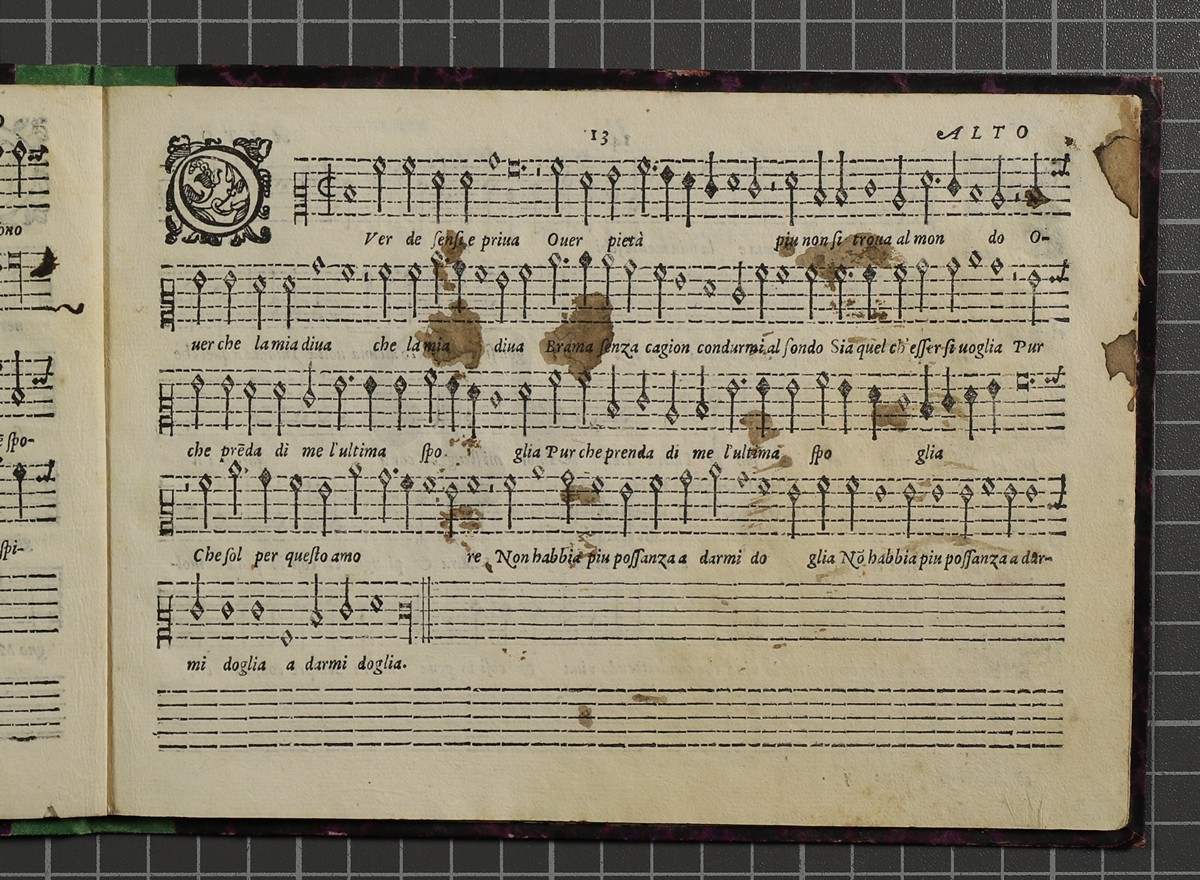 13
ALTO
OVer de sensi e priua Ouer pietà piu non si troua al mon do O-
uer che la mia diua che la mia diua Brama senza cagion condurmi al fondo Sia quel ch'esser si uoglia Pur
che prẽda di me l'ultima spo glia Pur che prenda di me l'ultima spo glia
Che sol per questo amo re Non habbia piu possanza a darmi do glia Nõ habbia piu possanza a dar-
mi doglia a darmi doglia.
ono
spo-
spi-